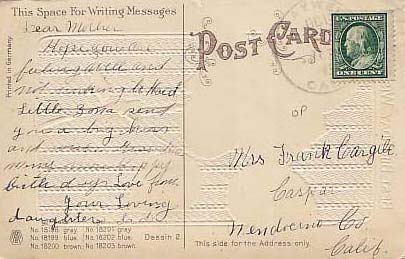 This Space For Writing Messages
Dear Mother
Hope you are
feeling well and
not working to Hard
Little send
you a big
and
many happy
birth days Love from
Your Loving
daughter
No. 18198 gray No. 18201 gray.
No. 18199 blue No. 18202 blue
No. 18200 brown. No. 18203 brown.
Dessin 2
Printed in Germany.
POST CARD
ONE CENT
Mrs Frank Cargile
Caspar
Mendocino Co
Calif.
This side for the Address only.